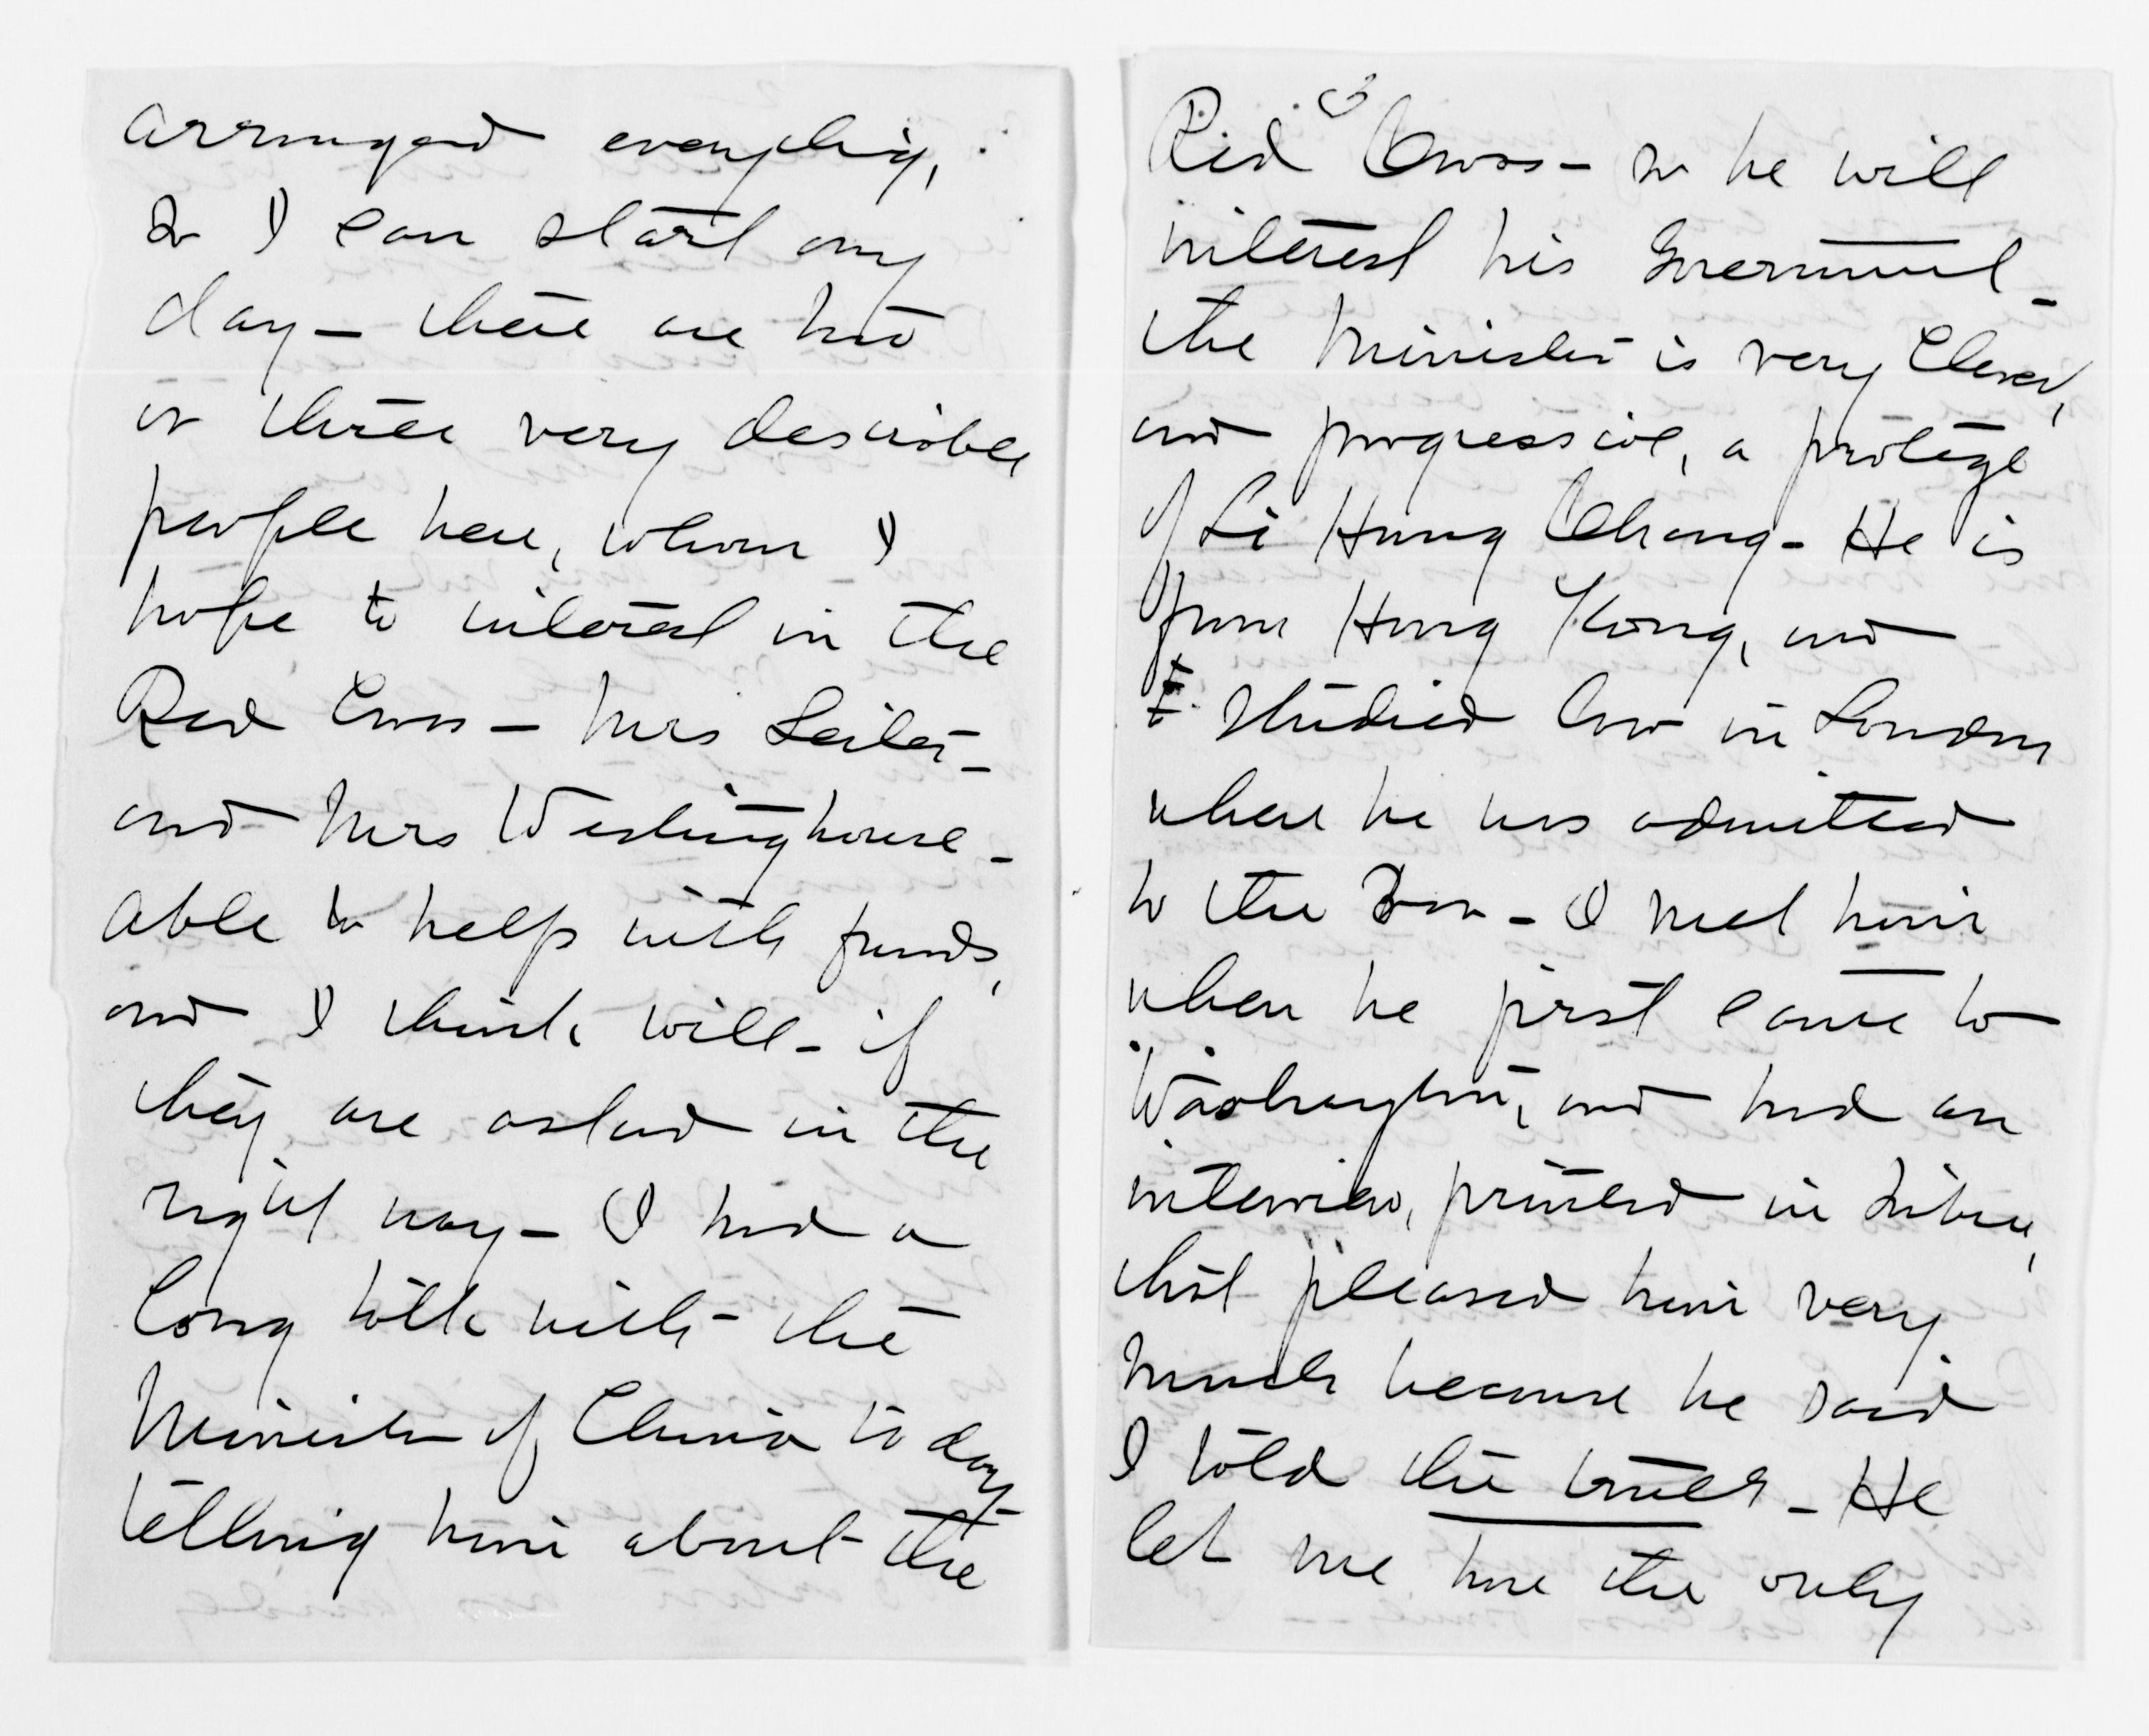 arranged everything,
so I can start any
day - there are two
or three very desirable
people here, whom I
hope to interest in the
Red Cross - Mrs Leiter -
and Mrs Westinghouse -
able to help with funds,
and I think will - if
they are asked in the
right way - I had a
long talk with the
Minister of China to day
telling him about the
3
Red Cross - so he will
interest his Government -
the Minister is very clever,
and progressive, a protege
of Li Hung Chang - He is
from Hong Kong, and
studied law in London
where he was admitted
to the Bar - I met him
when he first came to
Washington, and had an
interview, printed in
that pleased him very
much because he said
I told the truth - He
let me have the only